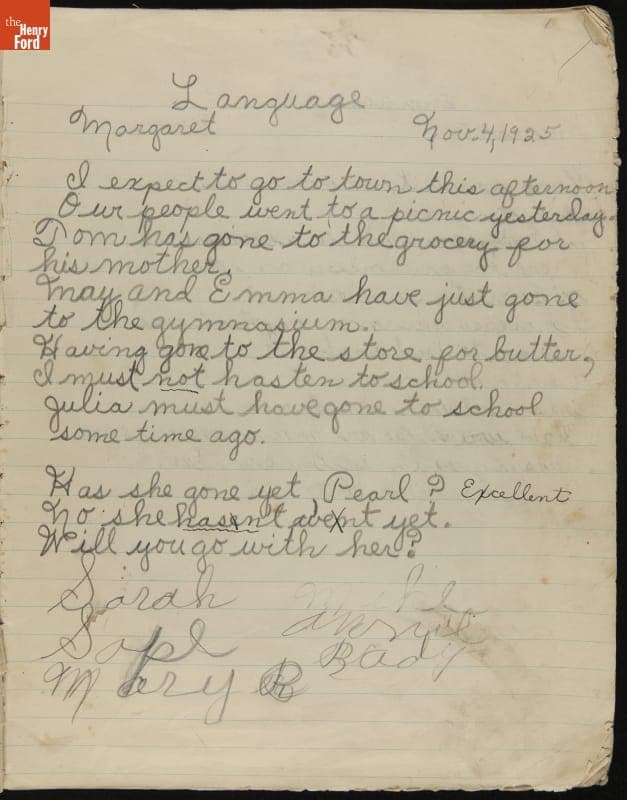 the
Henry
Ford
Language
Margaret Nov. 4, 1925
I expect to go to town this afternoon
Our people went to a picnic yesterday.
Tom has gone to the grocery for
his mother.
May and Emma have just gone
to the gymnasium.
Having gone to the store for butter,
I must not hasten to school.
Julia must have gone to school
some time ago.
Has she gone yet, Pearl? Excellent
No she hasent went yet.
Will you go with her?
Sarah
Mary R